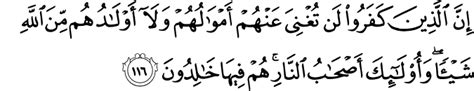 إِنَّ ٱلَّذِينَ كَفَرُوا۟ لَن تُغْنِىَ عَنْهُمْ أَمْوَٰلُهُمْ وَلَآ أَوْلَـٰدُهُم مِّنَ ٱللَّهِ
شَيْـًٔا ۖ وَأُو۟لَـٰٓئِكَ أَصْحَـٰبُ ٱلنَّارِ ۚ هُمْ فِيهَا خَـٰلِدُونَ ﴿١١٦﴾